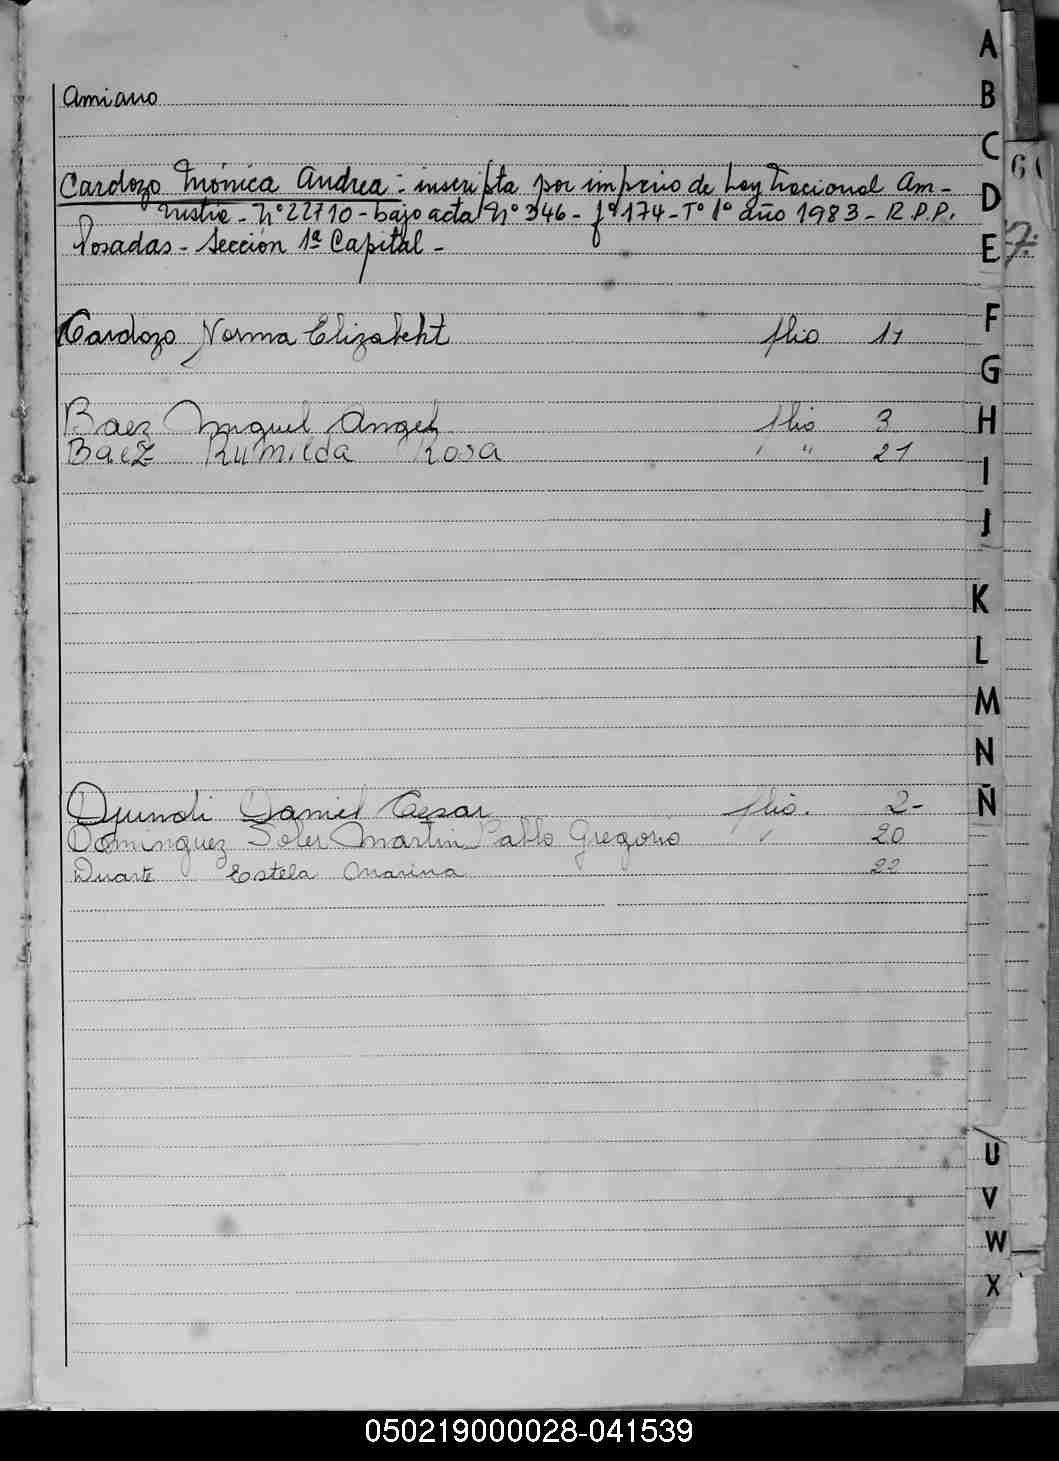 Amiano
Cardozo Mónica Andrea: inscripta por imperio de Ley Nacional Am-
nistia - Nº 22710 - bajo acta Nº 346 - fº 174 - Tº 1º año 1983 - R.P.P.
Posadas - Sección 1ª Capital -
Cardozo Norma Elizabeht flio 11
Baez Miguel Angel flio 3
Baez Rumilda Rosa " 21
Daniel Cesar flio. 2-
Dominguez Soler Martin Pablo Gregorio 20
Duarte Estela Marina 22
A
B
C
D
E
F
G
H
I
J
K
L
M
N
Ñ
U
V
W
X
050219000028-041539